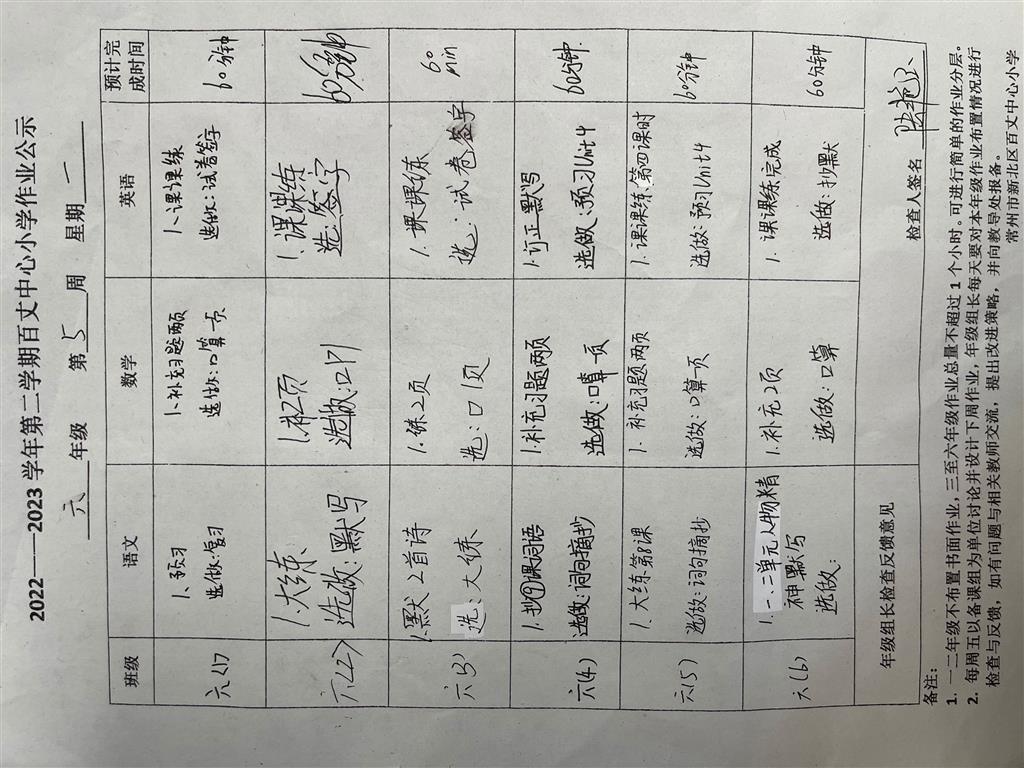 2022——2023 学年第二学期百丈中心小学作业公示
六 年级 第 5 周 星期 一
班级 语文 数学 英语 预计完成时间
六(1) 1、预习 1、补充习题两页 1、课课练 60分钟
选做:复习 选做:口算一页 选做:试卷签字
六(2) 1.大练 1.补2页 1.课课练 60分钟
选做:默写 选做:口P1 选:签字
六(3) 1.默2首诗 1.练2页 1.课课练 60min
选:大练 选:口1页 选:试卷签字
六(4) 1.抄⑨课词语 1.补充习题两页 1.订正默写 60分钟
选做:词句摘抄 选做:口算一页 选做:预习Unit4
六(5) 1.大练第8课 1.补充习题两页 1.课课练第四课时 60分钟
选做:词句摘抄 选做:口算一页 选做:预习Unit4
六(6) 1.一、二单元人物精 1.补充2页 1.课课练完成 60分钟
神默写 选做:口算 选做:抄默
选做:
年级组长检查反馈意见 检查人签名
备注:
1. 一二年级不布置书面作业,三至六年级作业总量不超过 1 个小时。可进行简单的作业分层。
2. 每周五以备课组为单位讨论并设计下周作业,年级组长每天要对本年级作业布置情况进行
检查与反馈,如有问题与相关教师交流,提出改进策略,并向教导处报备。
常州市新北区百丈中心小学